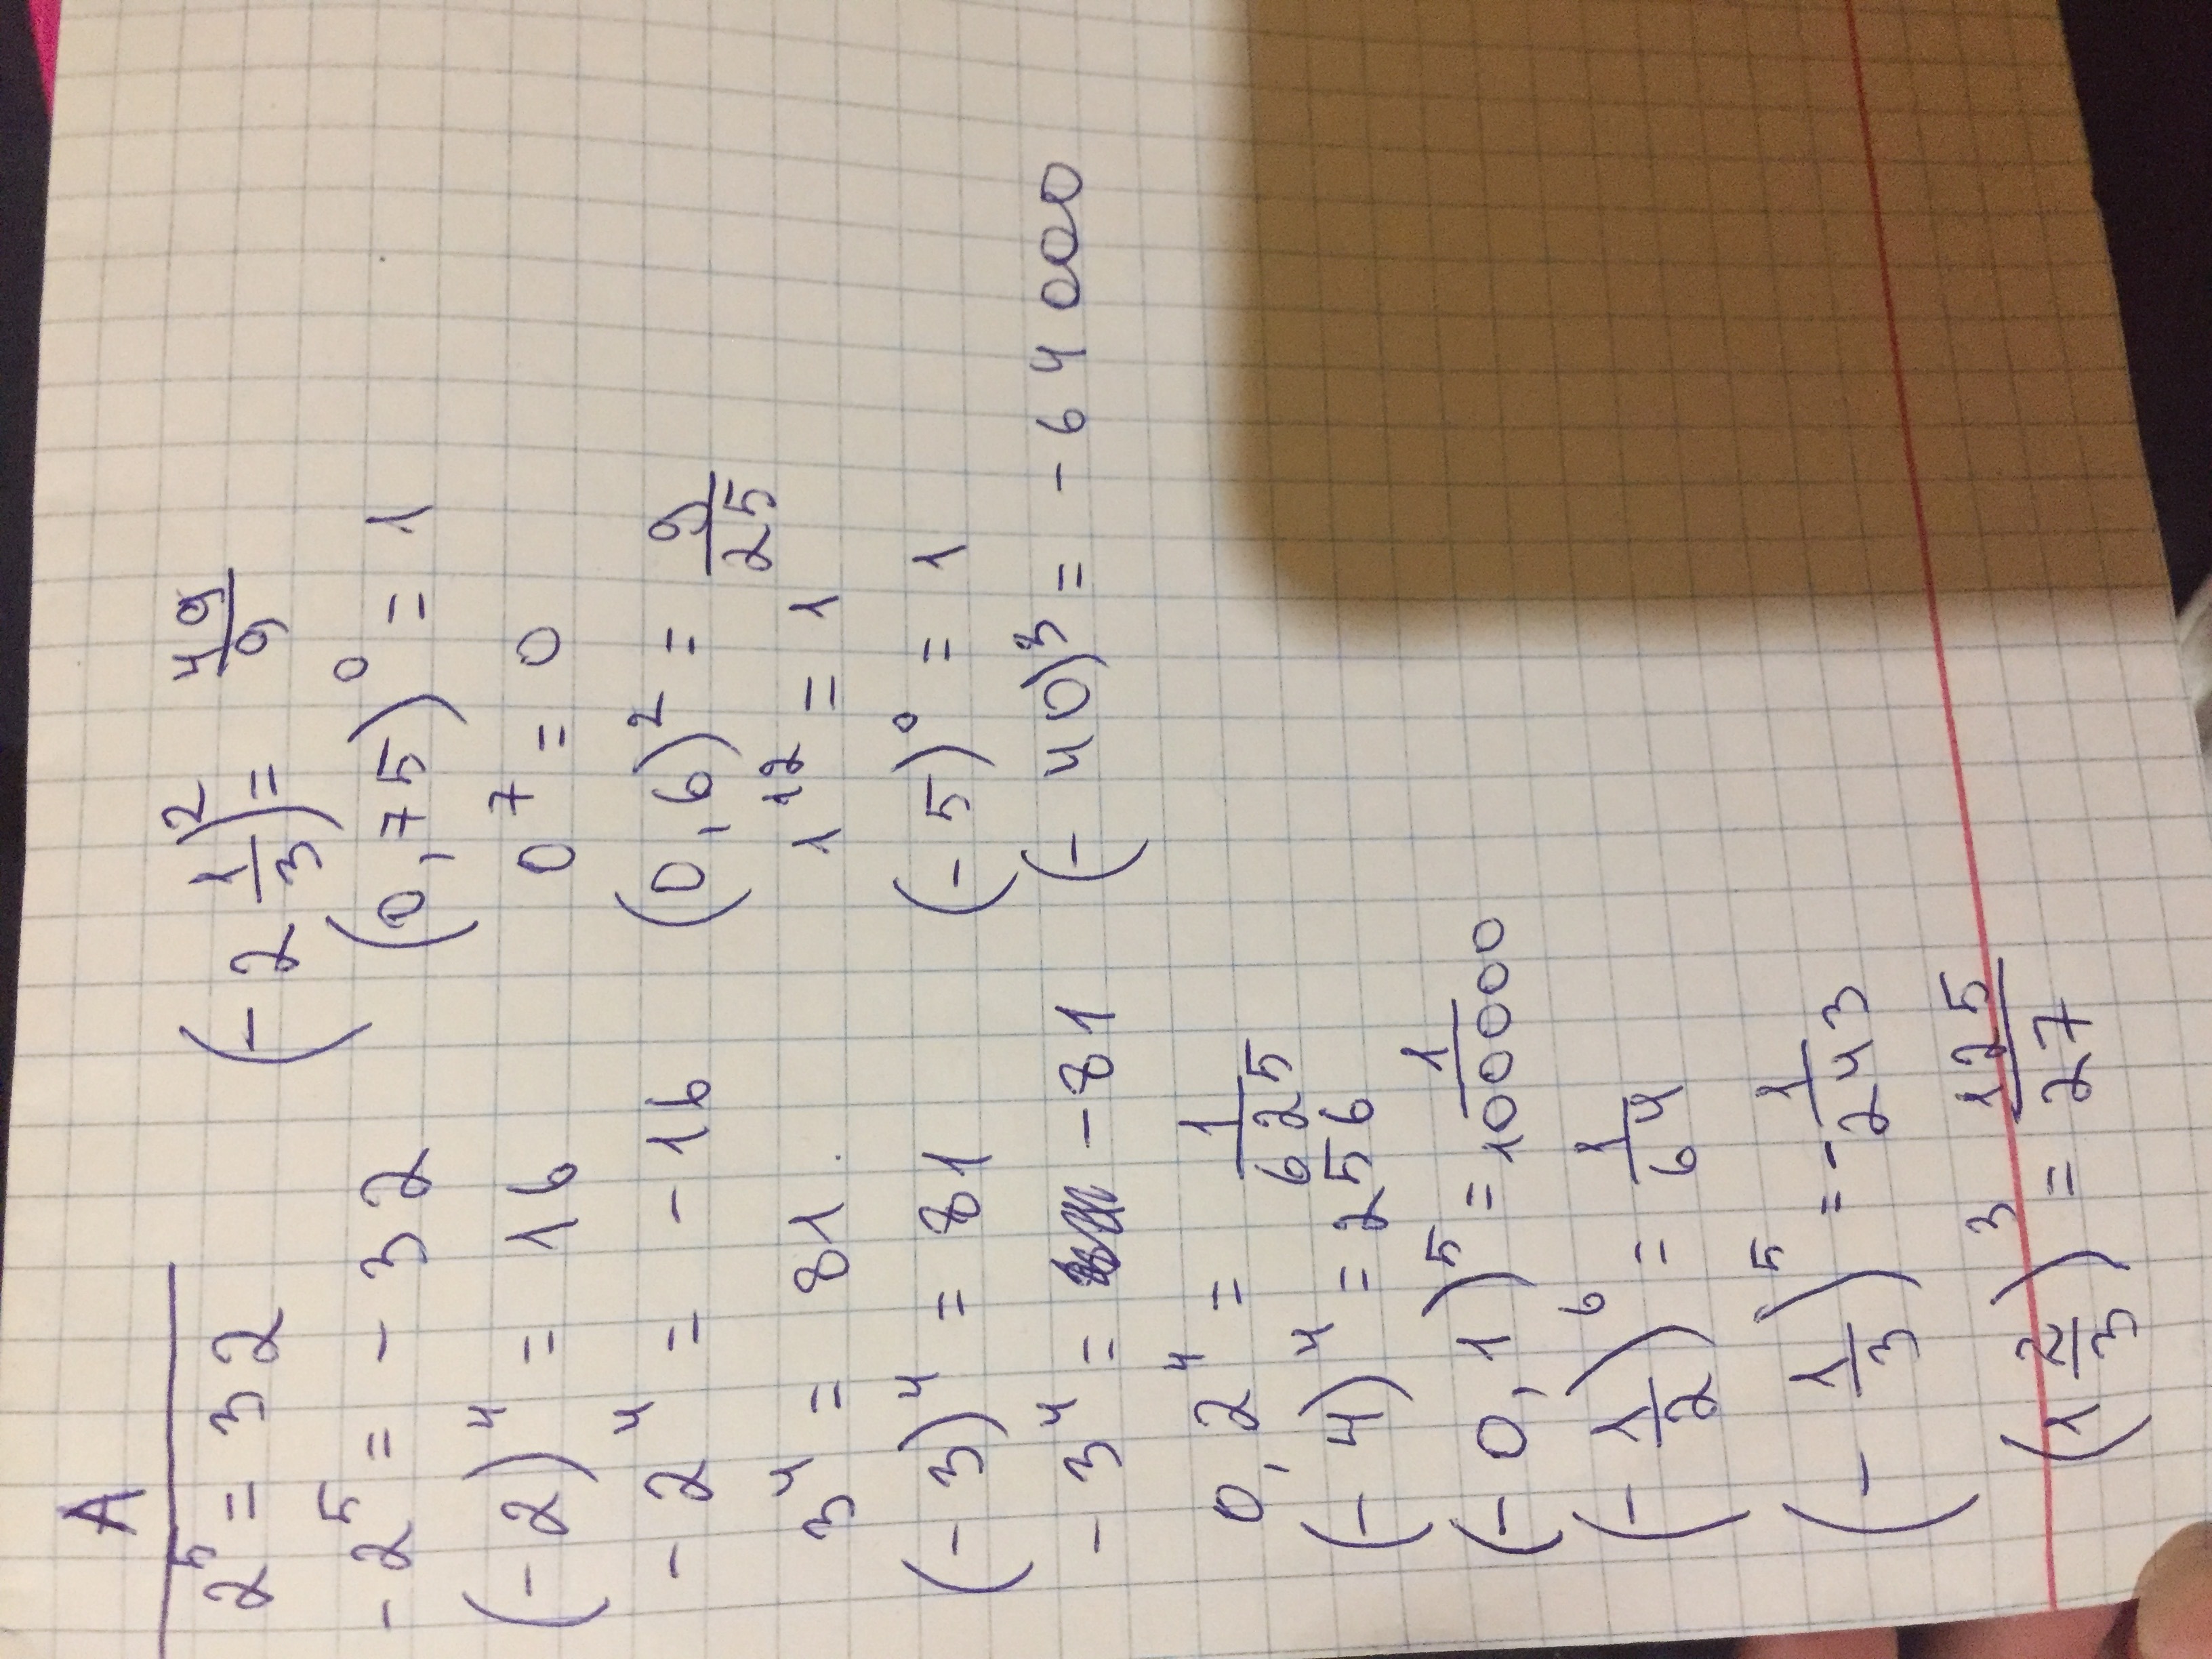 A
2⁵ = 32
-2⁵ = -32
(-2)⁴ = 16
-2⁴ = -16
3⁴ = 81
(-3)⁴ = 81
-3⁴ = -81
0,2⁴ = 1/625
(-4)⁴ = 256
(-0,1)⁵ = 1/100000
(-1/2)⁶ = 1/64
(-1/3)⁵ = -1/243
(1 2/3)³ = 125/27
(-2 1/3)² = 49/9
(0,75)⁰ = 1
0⁷ = 0
(0,6)² = 9/25
1¹² = 1
(-5)⁰ = 1
(-40)³ = -64000